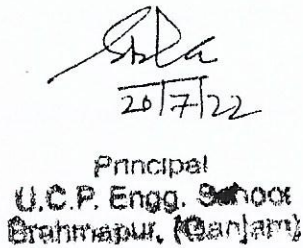 20/7/22
Principal
U.C.P. Engg. School
Brahmapur, (Ganjam)